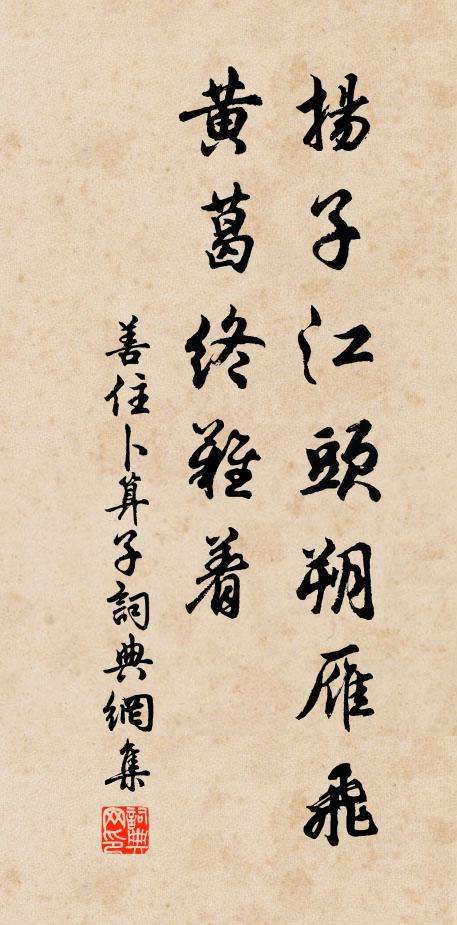 揚子江頭朔雁飛
黃葛終難着
善住卜算子詞典網集
詞典网印